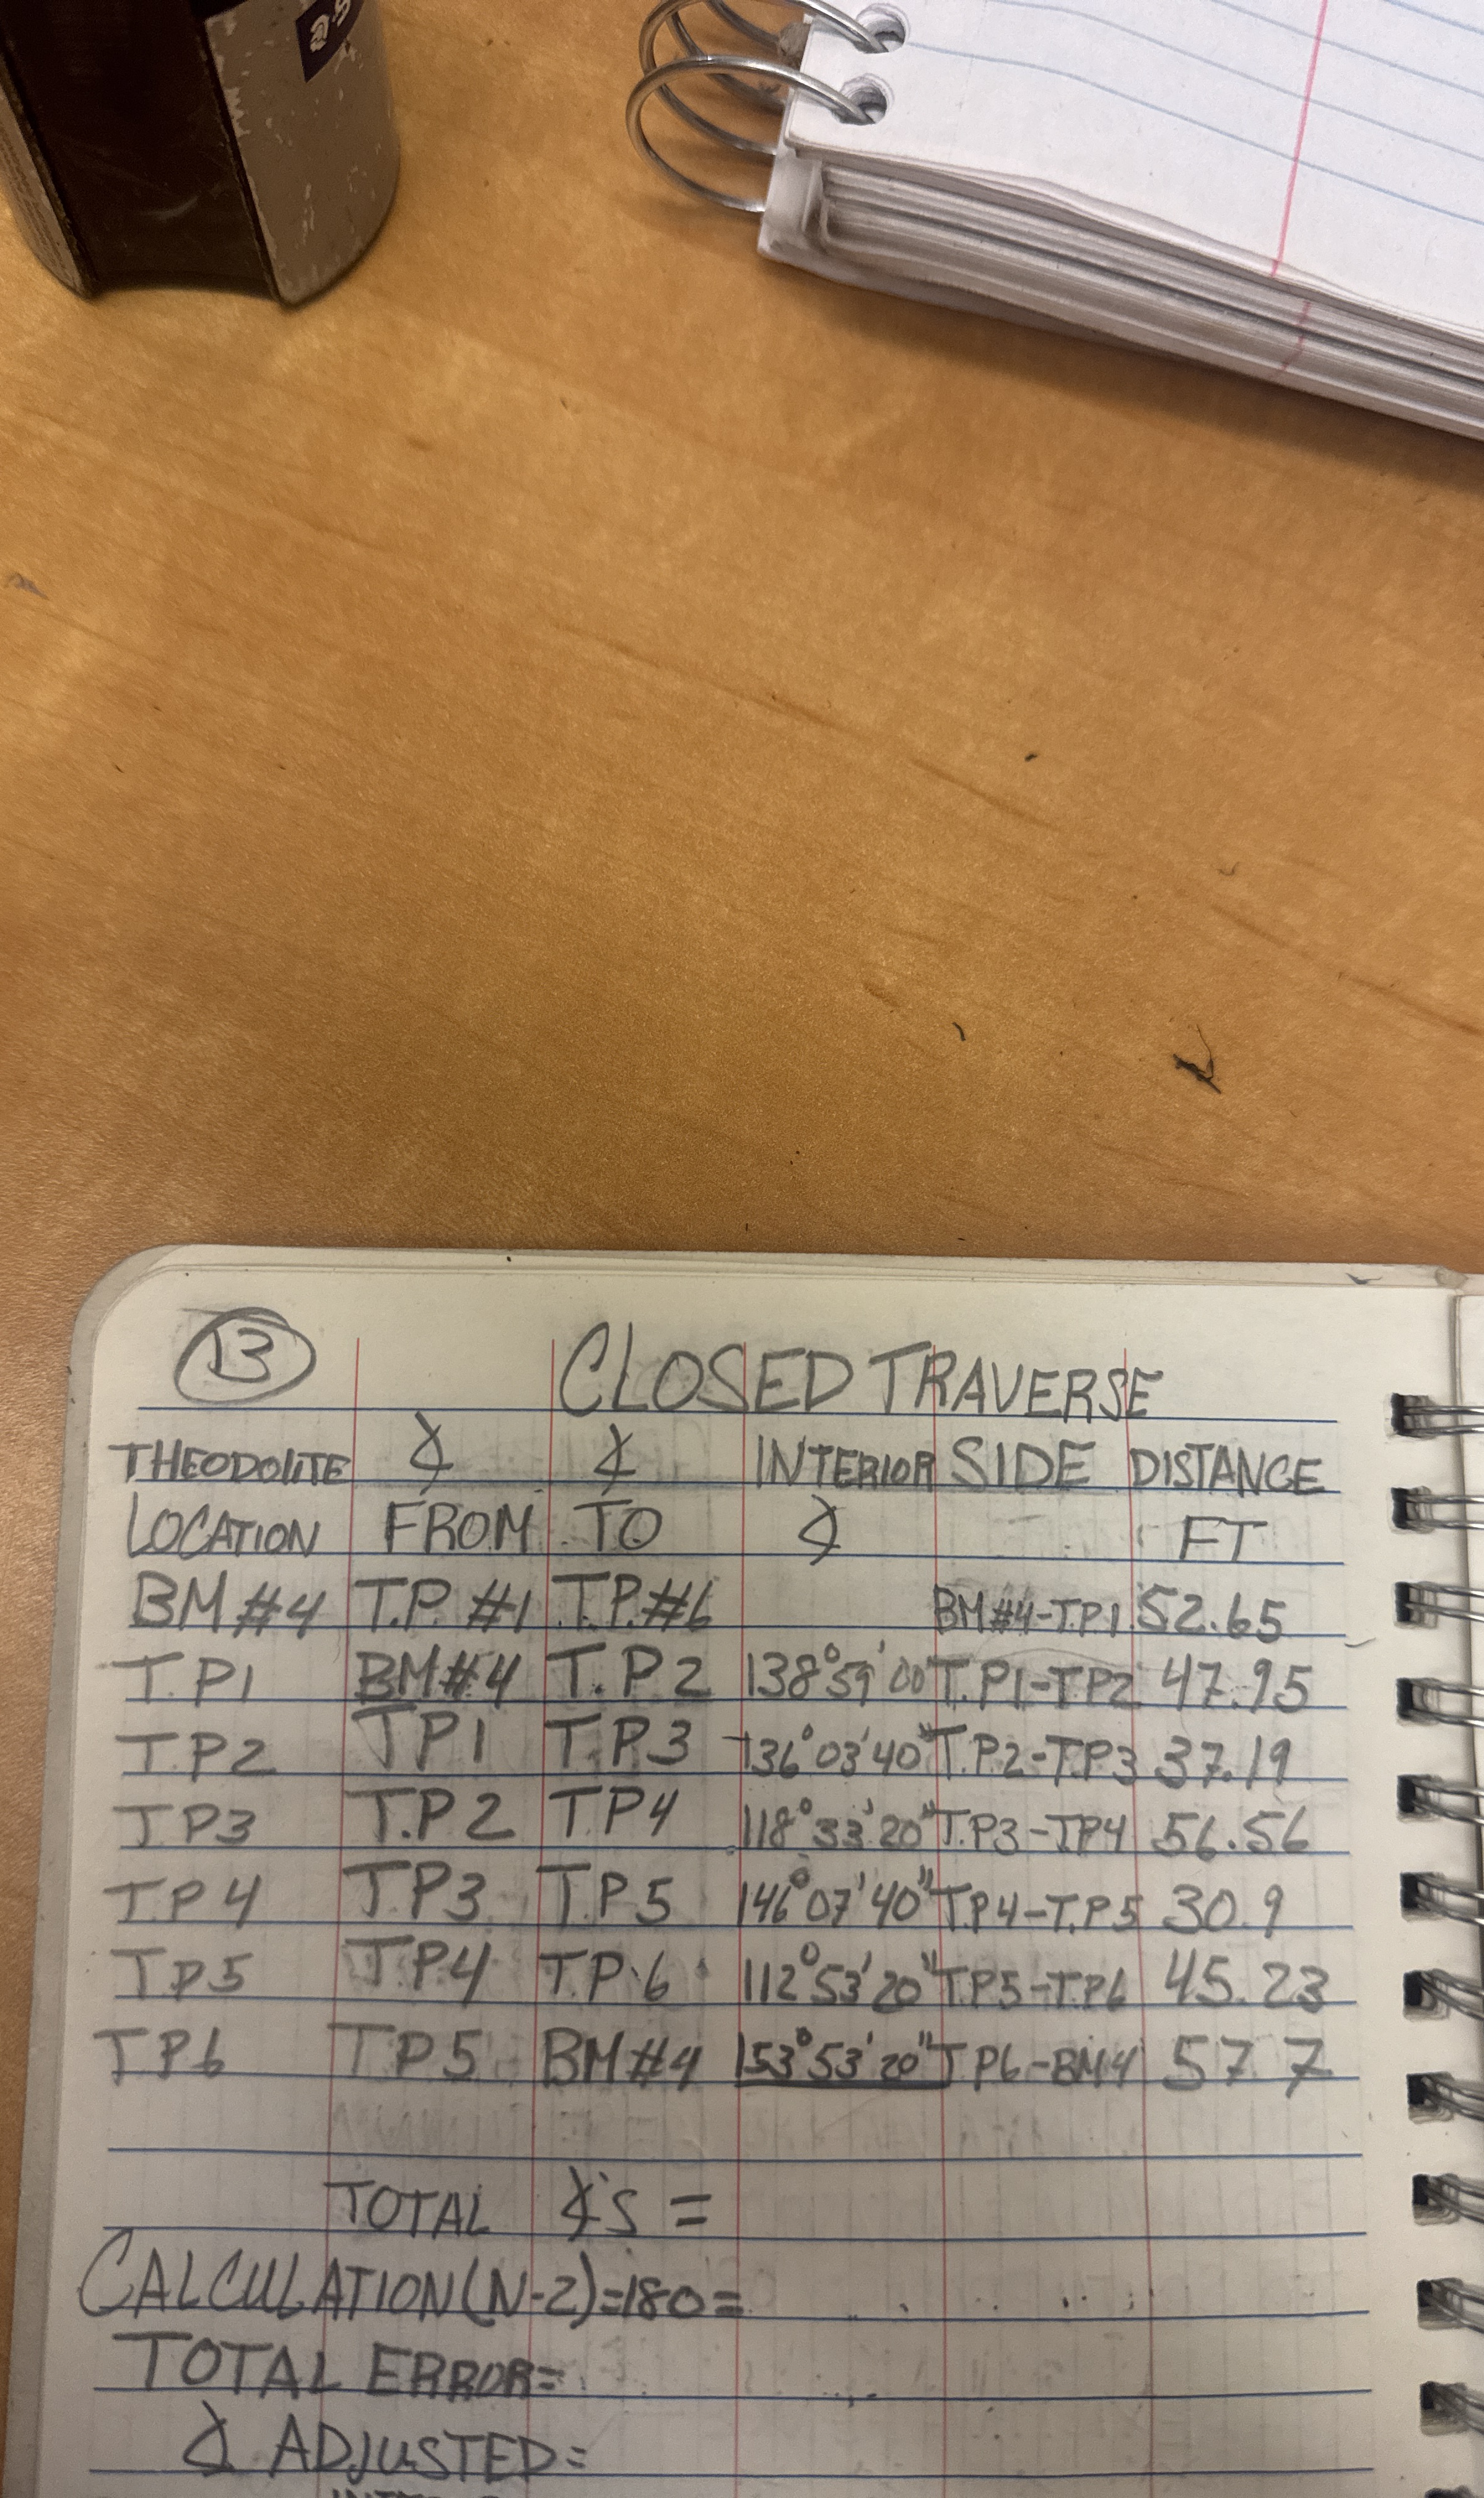 13 CLOSED TRAVERSE
THEODOLITE ∡ ∡ INTERIOR SIDE DISTANCE
LOCATION FROM TO ∡ FT
BM#4 T.P.#1 T.P.#6 BM#4-T.P1 52.65
T.P1 BM#4 T.P2 138°59'00 T.P1-TP2 47.95
T.P2 TP1 T.P3 136°03'40" T.P.2-T.P3 37.19
T.P3 T.P2 TP4 118°33'20" T.P3-TP4 56.56
T.P4 TP3 TP5 146°07'40" T.P4-T.P5 30.9
T.P5 TP4 T.P.6 112°53'20" T.P5-T.P6 45.23
TP6 TP5 BM#4 153°53'20" TP6-BM4 57.7
TOTAL ∡'S =
CALCULATION(N-2)=180=
TOTAL ERROR=
∡ ADJUSTED=